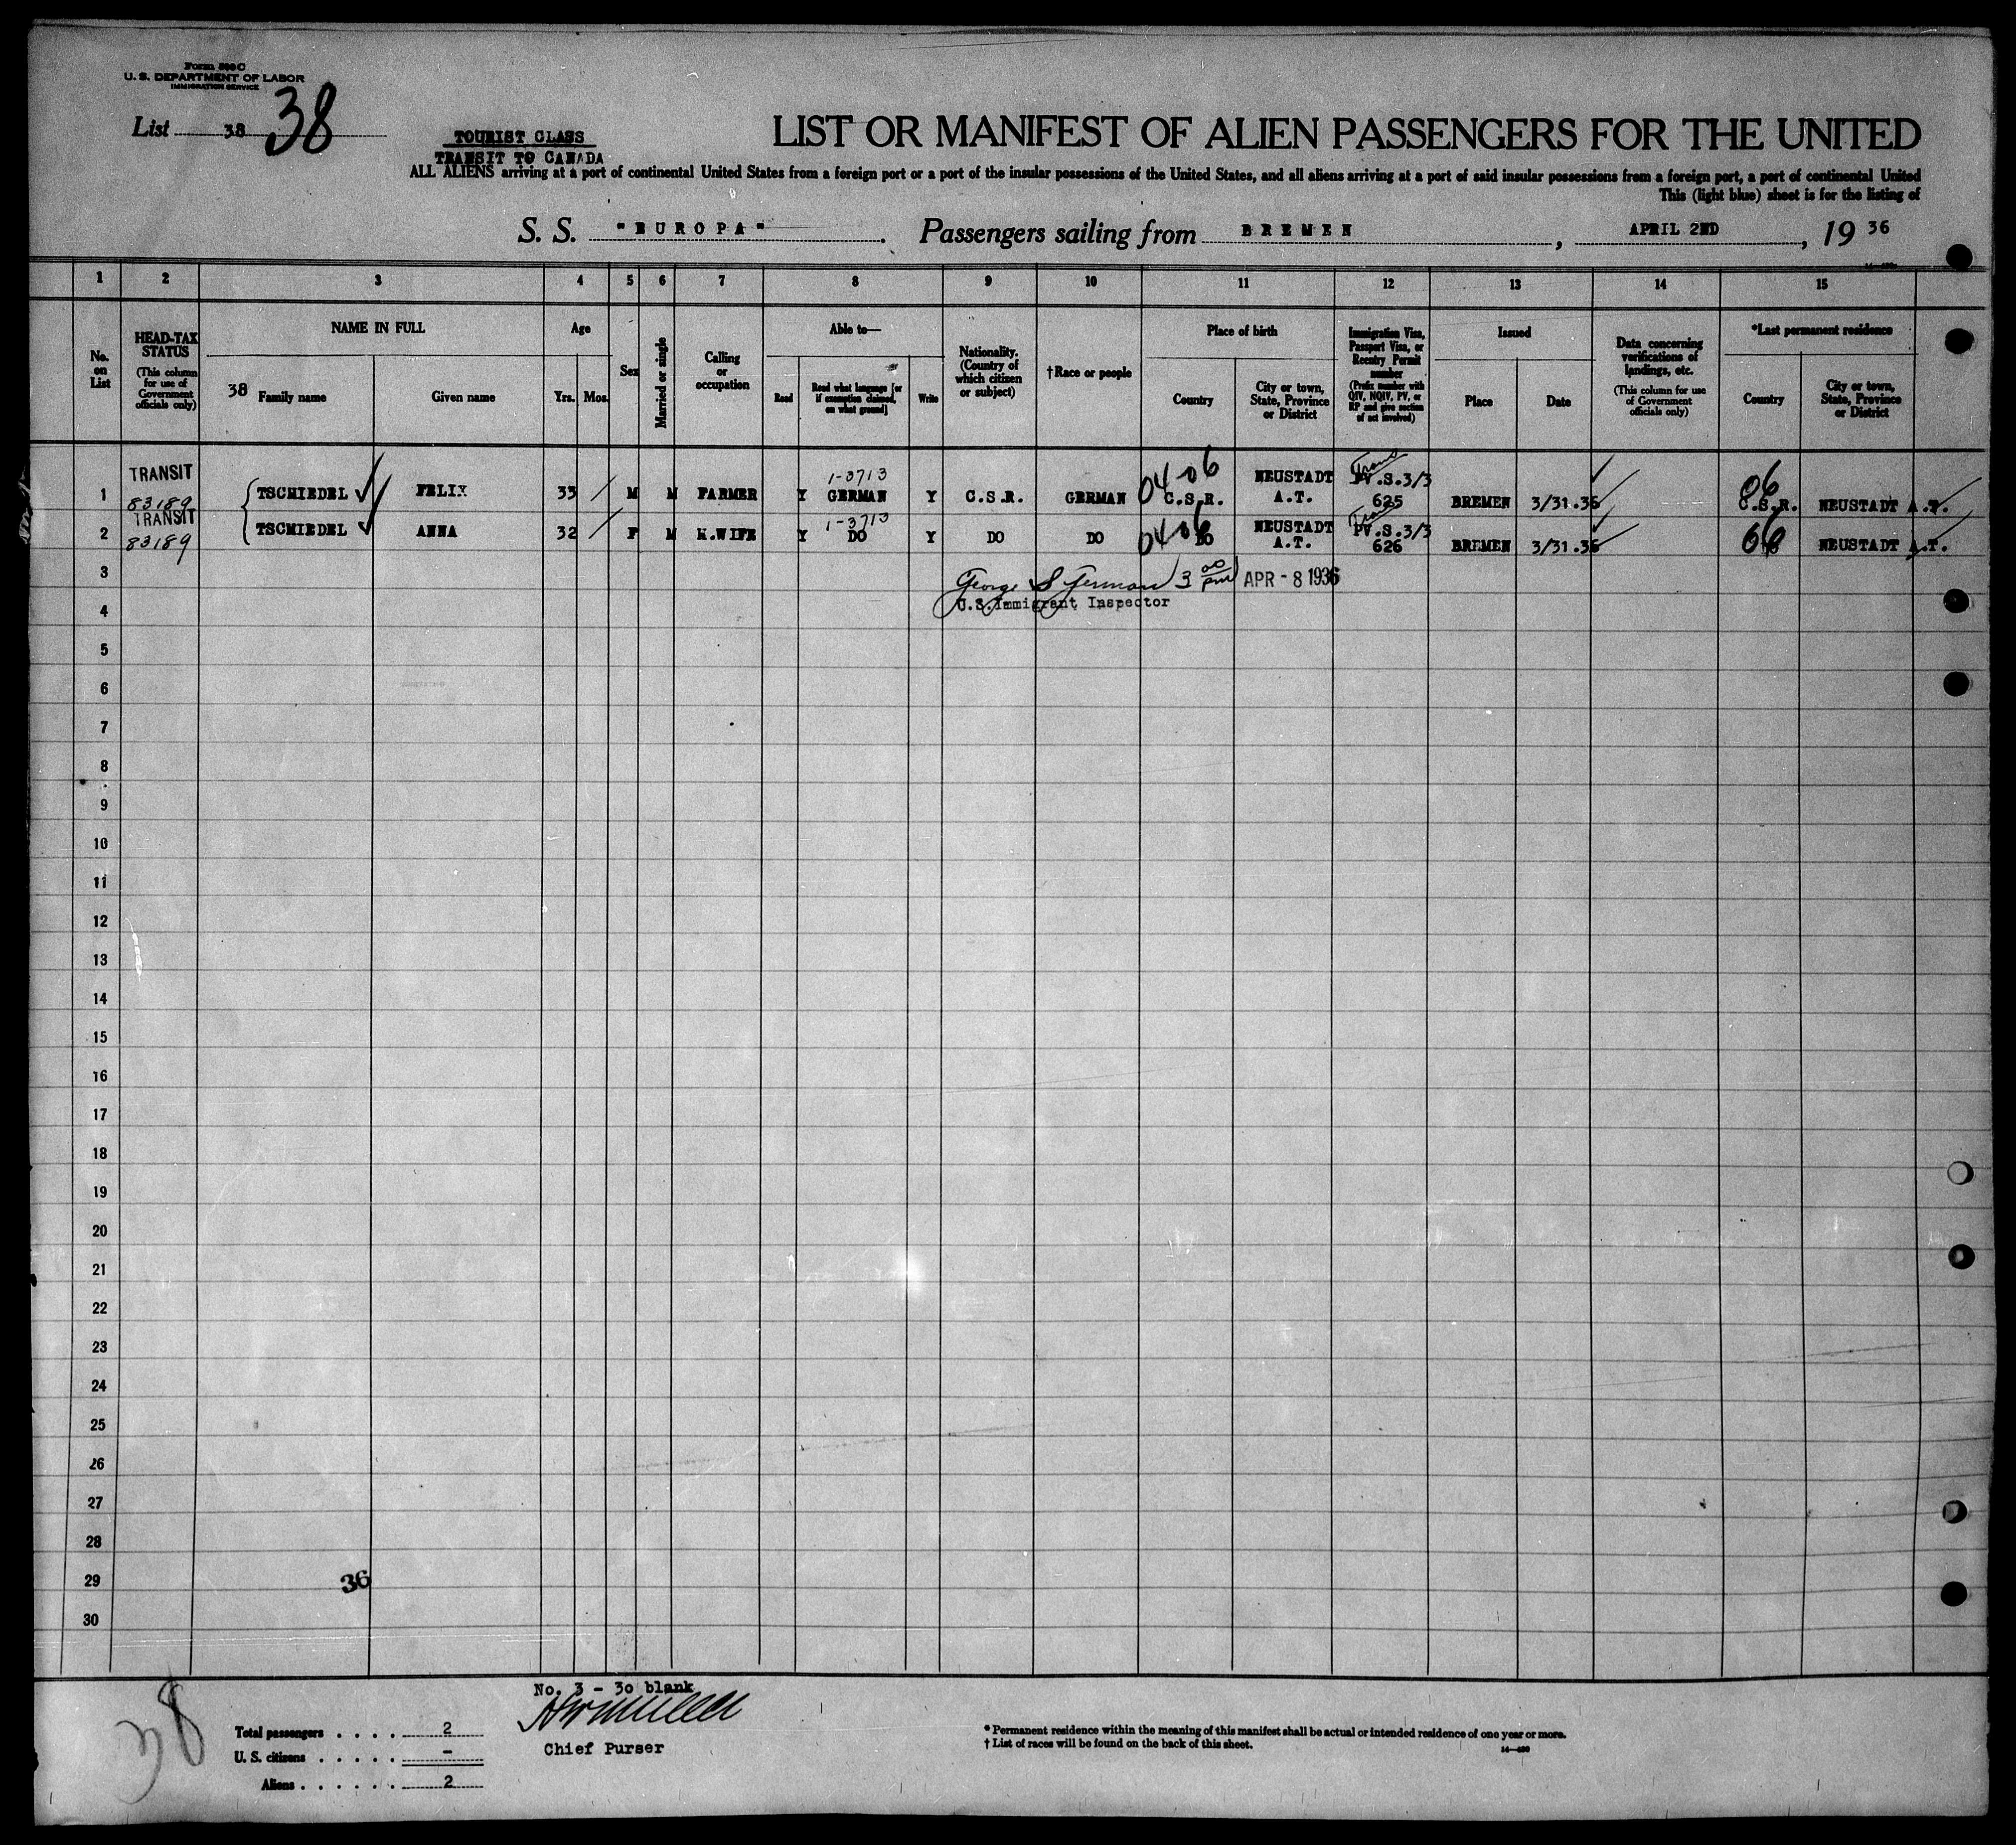 Form 500 C
U. S. DEPARTMENT OF LABOR
IMMIGRATION SERVICE
List 38 38
TOURIST CLASS
TRANSIT TO CANADA
LIST OR MANIFEST OF ALIEN PASSENGERS FOR THE UNITED
ALL ALIENS arriving at a port of continental United States from a foreign port or a port of the insular possessions of the United States, and all aliens arriving at a port of said insular possessions from a foreign port, a port of continental United
This (light blue) sheet is for the listing of
S. S. "EUROPA". Passengers sailing from BREMEN, APRIL 2ND, 1936
1 2 3 4 5 6 7 8 9 10 11 12 13 14 15
No. on List
HEAD-TAX STATUS
(This column for use of Government officials only)
NAME IN FULL
38 Family name
Given name
Age
Yrs. Mos.
Sex
Married or single
Calling or occupation
Able to—
Read
Read what language [or if exemption claimed, on what ground]
Write
Nationality. (Country of which citizen or subject)
†Race or people
Place of birth
Country
City or town, State, Province or District
Immigration Visa, Passport Visa, or Reentry Permit number
(Prefix number with QIV, NQIV, PV, or RP and give section of act involved)
Issued
Place
Date
Data concerning verifications of landings, etc.
(This column for use of Government officials only)
*Last permanent residence
Country
City or town, State, Province or District
1 TRANSIT 83189 TSCHIEDEL FELIX 33 M M FARMER Y 1-3713 GERMAN Y C.S.R. GERMAN 04-06 C.S.R. NEUSTADT A.T. Trans PV.S.3/3 625 BREMEN 3/31.36 06 C.S.R. NEUSTADT A.T.
2 TRANSIT 83189 TSCHIEDEL ANNA 32 F M H.WIFE Y 1-3713 DO Y DO DO 04-06 DO NEUSTADT A.T. Trans PV.S.3/3 626 BREMEN 3/31.36 06 NEUSTADT A.T.
3 George S German 3 00 pm APR - 8 1936
U.S.Immigrant Inspector
4
5
6
7
8
9
10
11
12
13
14
15
16
17
18
19
20
21
22
23
24
25
26
27
28
29
36
30
No. 3 - 30 blank
38
Total passengers . . . . 2
U. S. citizens . . . . . -
Aliens . . . . . . 2
Chief Purser
* Permanent residence within the meaning of this manifest shall be actual or intended residence of one year or more.
† List of races will be found on the back of this sheet.